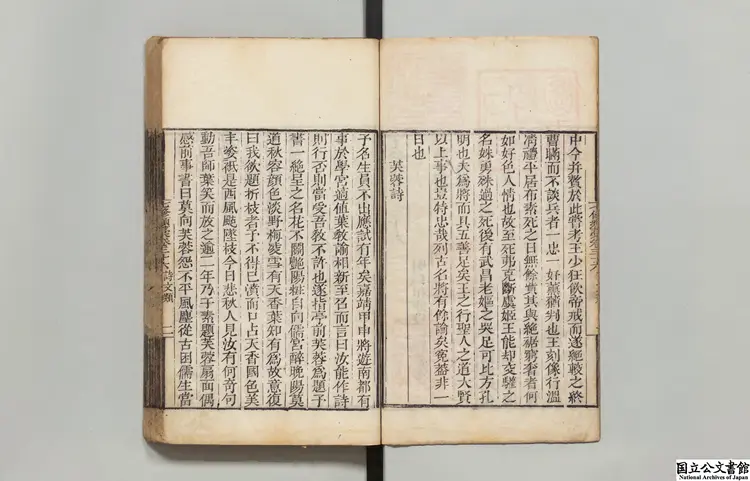 中今并贅於此嘗考王少狂飲帝戒而遂絕較之終
曹瞞而不談兵者一忠一奸薰蕕判也王刻像行溫
凊禮平居布素死之日無餘貲其與絕裾窮奢者何
如好色人情也故至死弗克斷虞姬王能却之
名姝勇殊過之死後有武昌老嫗之哭足可比方孔
明也夫為將而具五善足矣王之行聖人之道大賢
以上事也豈特忠哉列古名將有餘諭矣冤蓋非一
日也
芙蓉詩
予名生員不出應試有年矣嘉靖甲申將遊南都有
事於學宮適值葉教諭相新至召而言曰汝能作詩
則行否則當受吾教不許也遂指亭前芙蓉爲題予
書一絕呈之名花不關艷陽粧自向儒宮醉晚陽莫
道秋容顏色淡野梅凌雪有天香葉知有爲故意復
曰我欲題折枝者予不得已而口占天香國色芙
丰姿秪是西風颭墜枝今日悲秋人見汝有何奇句
動吾師葉笑而放之逾二年乃于素題芙蓉扇面偶
感前事書曰莫向芙蓉怨不平風塵從古困儒生當
詩文類
二
国立公文書館
National Archives of Japan